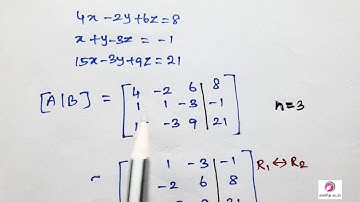 4x-2y+6z=8
x+y-3z=-1
15x-3y+9z=21
[A|B] = [4 -2 6 | 8
1 1 -3 | -1
1 -3 9 | 21] n=3
~ [1 -3 | -1 R₁↔R₂
-2 6 | 8